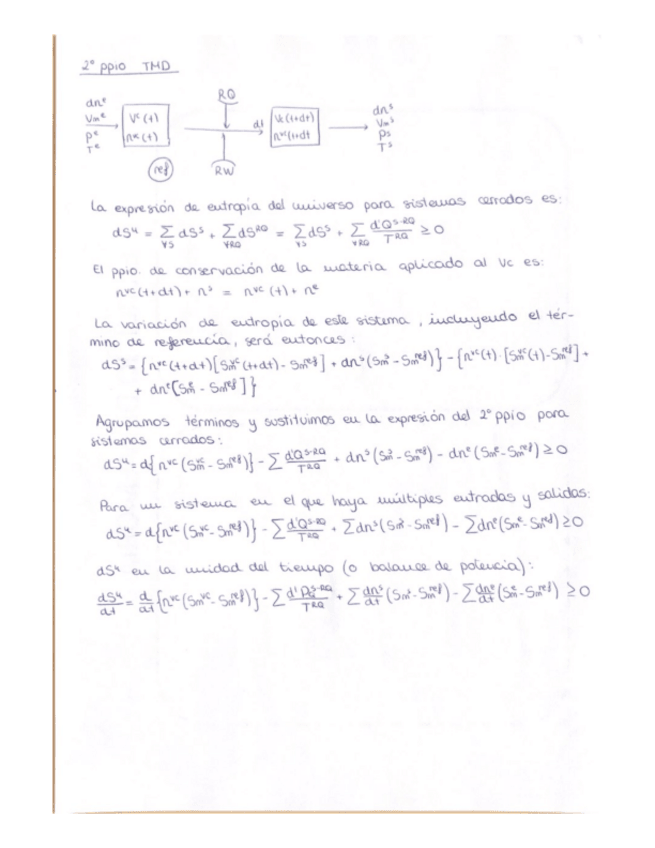 2º ppio TMD
RQ
dnᵉ
Vmᵉ
pᵉ
Tᵉ
Vᶜ(t)
nᵛᶜ(t)
dt
Vc(t+dt)
nᵛᶜ(t+dt
dnˢ
Vmˢ
pˢ
Tˢ
ref
RW
La expresión de entropía del universo para sistemas cerrados es:
dSᵘ = Σ∀S dSˢ + Σ∀RQ dSᴿQ = Σ∀S dSˢ + Σ∀RQ d'Qˢ⁻ᴿQ/TᴿQ ≥ 0
El ppio. de conservación de la materia aplicado al Vc es:
nᵛᶜ(t+dt) + nˢ = nᵛᶜ(t) + nᵉ
La variación de entropía de este sistema, incluyendo el tér-
mino de referencia, será entonces:
dSˢ = {nᵛᶜ(t+dt)[Smᵛᶜ(t+dt) - Smʳᵉᶠ] + dnˢ(Smˢ - Smʳᵉᶠ)} - {nᵛᶜ(t)·[Smᵛᶜ(t) - Smʳᵉᶠ] +
+ dnᵉ[Smᵉ - Smʳᵉᶠ]}
Agrupamos términos y sustituimos en la expresión del 2º ppio para
sistemas cerrados:
dSᵘ = d{nᵛᶜ(Smᵛᶜ - Smʳᵉᶠ)} - Σ d'Qˢ⁻ᴿQ/TᴿQ + dnˢ(Smˢ - Smʳᵉᶠ) - dnᵉ(Smᵉ - Smʳᵉᶠ) ≥ 0
Para un sistema en el que haya múltiples entradas y salidas:
dSᵘ = d{nᵛᶜ(Smᵛᶜ - Smʳᵉᶠ)} - Σ d'Qˢ⁻ᴿQ/TᴿQ + Σdnˢ(Smˢ - Smʳᵉᶠ) - Σdnᵉ(Smᵉ - Smʳᵉᶠ) ≥ 0
dSᵘ en la unidad del tiempo (o balance de potencia):
dSᵘ/dt = d/dt{nᵛᶜ(Smᵛᶜ - Smʳᵉᶠ)} - Σ d'ṖQˢ⁻ᴿQ/TᴿQ + Σ dnˢ/dt (Smˢ - Smʳᵉᶠ) - Σ dnᵉ/dt (Smᵉ - Smʳᵉᶠ) ≥ 0